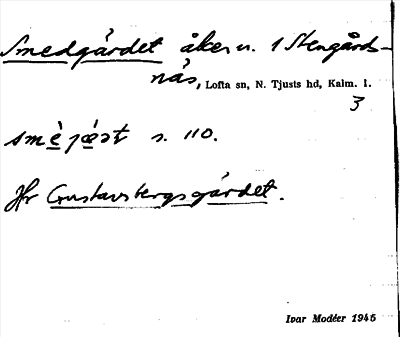 Smedgärdet åker u. 1 Stengårds-
näs, Lofta sn, N. Tjusts hd, Kalm. l.
3
smèjæ̀ət s. 110.
Jfr Gustavsbergsgärdet.
Ivar Modéer 1945